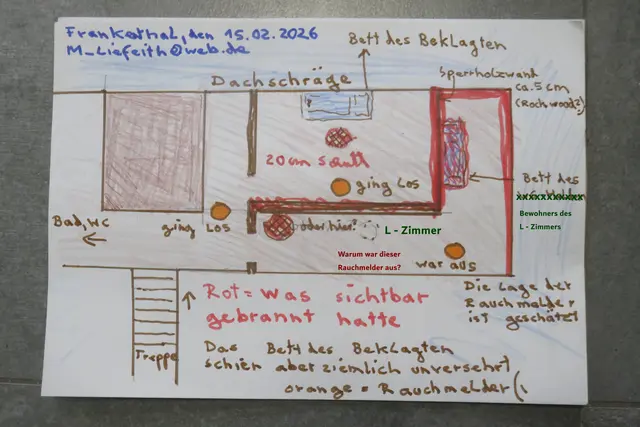 Frankenthal, den 15.02.2026
M_Liefeith@web.de
Bett des Beklagten
Dachschräge
Sperrholzwand
ca. 5 cm
(Rockwool?)
20cm Schutt
ging Los
Bett des
xxxxxxxxxxx
Bewohners des
L - Zimmers
Bad, WC
ging Los
oder hier?
L - Zimmer
Warum war dieser
Rauchmelder aus?
war aus
Die Lage der
Rauchmelder
ist geschätzt
Rot = was sichtbar
gebrannt hatte
Treppe
Das Bett des Beklagten
schien aber ziemlich unversehrt
orange = Rauchmelder (